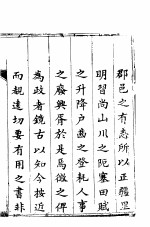 郡邑之有志所以正疆里
明習尚山川之阨塞田賦
之升降戶齒之登耗人事
之廢興胥於是焉徵之俾
為政者鏡古以知今按近
而親遠切要有用之書非